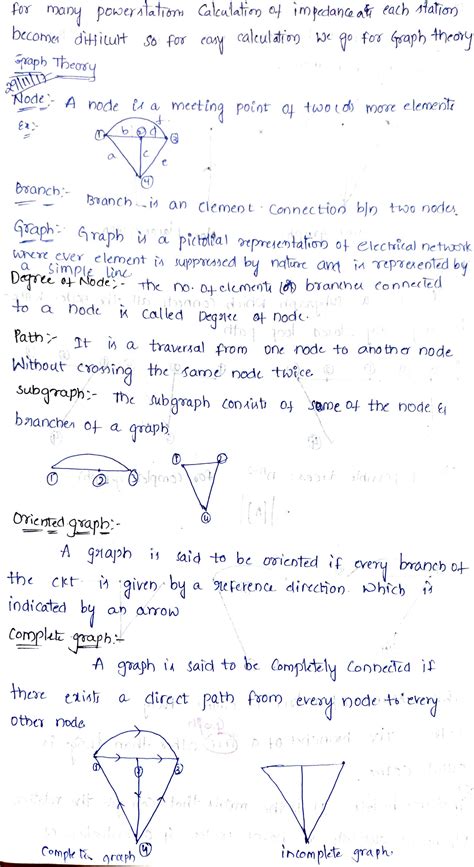 for many powerstations calculation of impedance at each station
becomes difficult so for easy calculation we go for Graph theory
Graph Theory
29/11/17
Node:- A node is a meeting point of two (or) more elements
Ex:-
f
1 b 2 d 3
a c e
4
Branch:- Branch is an element connection b/n two nodes.
Graph:- Graph is a pictorial representation of electrical network
where ever element is suppressed by nature and is represented by
a simple line
Degree of Node:- The no. of elements (or) branches connected
to a node is called Degree of node.
Path:- It is a traversal from one node to another node
Without crossing the same node twice.
subgraph:- The subgraph consists of some of the node &
branches of a graph
1 2 3
1 2
4
Oriented graph:-
A graph is said to be oriented if every branch of
the ckt is given by a reference direction which is
indicated by an arrow
Complete graph:-
A graph is said to be completely connected if
there exists a direct path from every node to every
other node
1 2 3
4
Complete graph
incomplete graph.